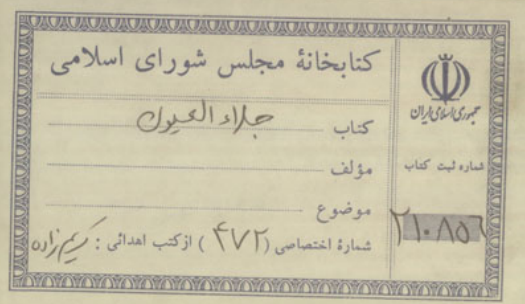 کتابخانهٔ مجلس شورای اسلامی
کتاب جلاء العیون
مؤلف
موضوع
شمارهٔ اختصاصی (۴۷۲) از کتب اهدائی : کریم‌زاده
جمهوری اسلامی ایران
شماره ثبت کتاب
۲۱۰۸۵۶